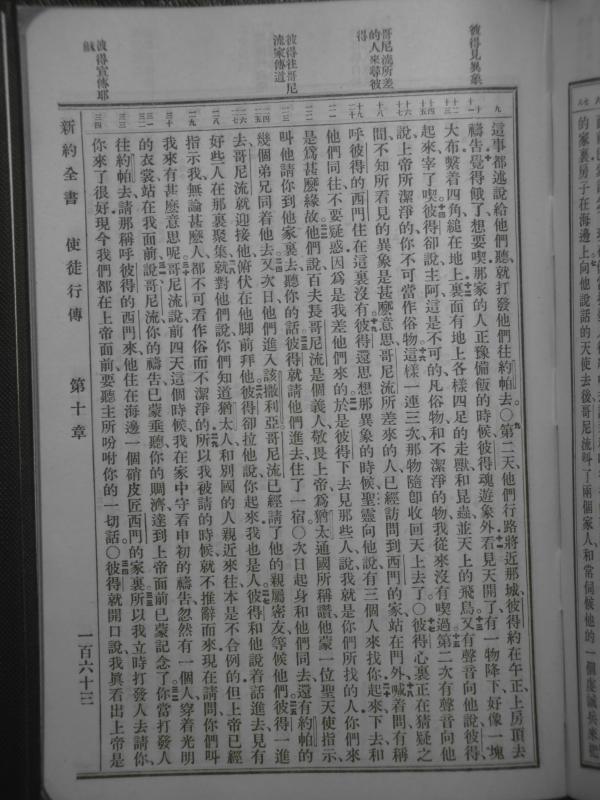 彼得見異象
哥尼流所差
的人來尋彼
得
彼得往哥尼
流家傳道
彼得宣傳耶
穌
這事都述說給他們聽就打發他們往約帕去○第二天他們行路將近那城彼得約在午正上房頂去
禱告覺得餓了想要喫那家的人正豫備飯的時候彼得魂遊象外看見天開了有一物降下好像一塊
大布繫着四角縋在地上裏面有地上各樣四足的走獸和昆蟲並天上的飛鳥又有聲音向他說彼得
起來宰了喫彼得卻說主阿這是不可的凡俗物和不潔淨的物我從來沒有喫過第二次有聲音向他
說上帝所潔淨的你不可當作俗物這樣一連三次那物隨卽收回天上去了○彼得心裏正在猜疑之
間不知所看見的異象是甚麼意思哥尼流所差來的人已經訪問到西門的家站在門外喊着問有稱
呼彼得的西門住在這裏沒有彼得還思想那異象的時候聖靈向他說有三個人來找你起來下去和
他們同往不要疑惑因爲是我差他們來的於是彼得下去見那些人說我就是你們所找的人你們來
是爲甚麼緣故他們說百夫長哥尼流是個義人敬畏上帝爲猶太通國所稱讚他蒙一位聖天使指示
叫他請你到他家裏去聽你的話彼得就請他們進去住了一宿○次日起身和他們同去還有約帕的
幾個弟兄同着他去又次日他們進入該撒利亞哥尼流已經請了他的親屬密友等候他們彼得一進
去哥尼流就迎接他俯伏在他脚前拜他彼得卻拉他說你起來我也是人彼得和他說着話進去見有
好些人在那裏聚集就對他們說你們知道猶太人和別國的人親近來往本是不合例的但上帝已經
指示我無論甚麼人都不可看作俗而不潔淨的所以我被請的時候就不推辭而來現在請問你們叫
我來有甚麼意思呢哥尼流說前四天這個時候我在家中守着申初的禱告忽然有一個人穿着光明
的衣裳站在我面前說哥尼流你的禱告已蒙垂聽你的賙濟達到上帝面前已蒙記念了你當打發人
往約帕去請那稱呼彼得的西門來他住在海邊一個硝皮匠西門的家裏所以我立時打發人去請你
你來了很好現今我們都在上帝面前要聽主所吩咐你的一切話○彼得就開口說我眞看出上帝是
新約全書 使徒行傳 第十章 一百六十三